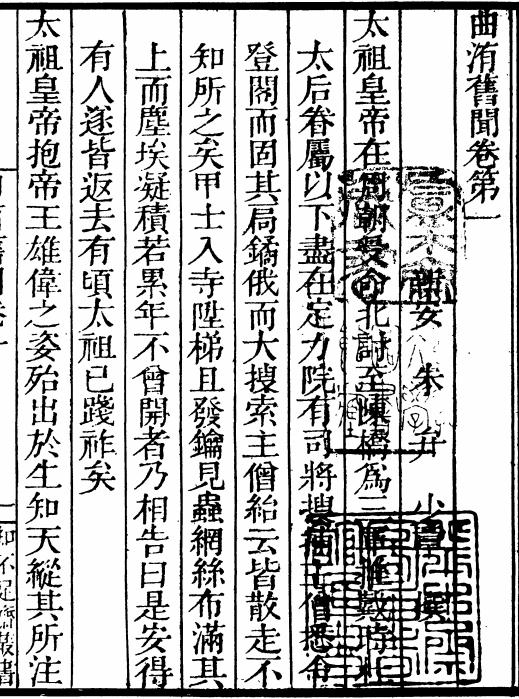 曲洧舊聞卷第一
新安 朱弁 少章 撰
太祖皇帝在周朝受命北討至陳橋爲三軍推戴時杜
太后眷屬以下盡在定力院有司將搜捕主僧悉令
登閣而固其局鐍俄而大搜索主僧紿云皆散走不
知所之矣甲士入寺陞梯且發鑰見蟲網絲布滿其
上而塵埃凝積若累年不曾開者乃相告曰是安得
有人遂皆返去有頃太祖已踐祚矣
太祖皇帝抱帝王雄偉之姿殆出於生知天縱其所注
知不足齋叢書